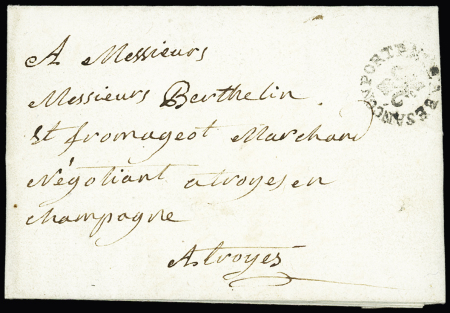 A Messieurs
Messieurs Berthelin
et fromageot Marchand
Négotiant a troyes en
champagne
A troyes
BESANCON PORT